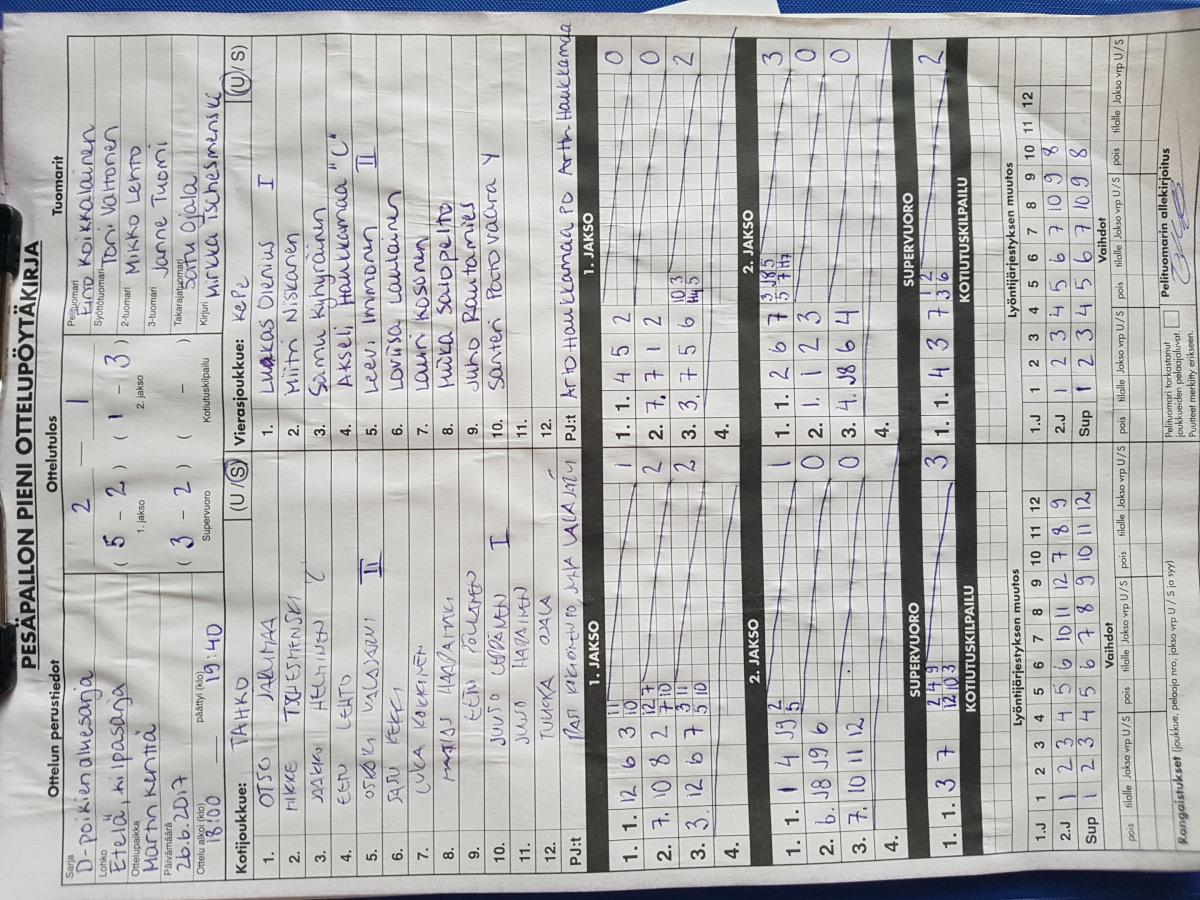 PESÄPALLON PIENI OTTELUPÖYTÄKIRJA
Ottelun perustiedot
Sarja
D-poikien aluesarja
Lohko
Etelä, kilpasarja
Ottelupaikka
Martin kenttä
Päivämäärä
26.6.2017
Ottelu alkoi (klo)
18:00
päättyi (klo)
19:40
Ottelutulos
2 — 1
( 5 - 2 ) ( 1 - 3 )
1. jakso 2. jakso
( 3 - 2 ) ( - )
Supervuoro Kotiutuskilpailu
Tuomarit
Pelituomari
Eino Koikkalainen
Syöttötuomari
Toni Valtonen
2-tuomari
Mikko Lehto
3-tuomari
Janne Tuomi
Takarajatuomari
Satu Ojala
Kirjuri
Mirkka Tshesmenski
Kotijoukkue: TAHKO (U / S)
1. OTSO JALUMAA
2. MIKE TSHESMENSKI
3. JAKKO HELMINEN C
4. EETU LEHTO
5. OSKARI VALAJÄRVI II
6. SASU KEKKI
7. LUKA KOKKINEN
8. MATIS HAAPAMÄKI
9. EEMI PÖLLÄNEN
10. JUUSO LEPPÄNEN I
11. JUUSO HAPAINEN
12. TUUKKA OJALA
PJ:t
Vierasjoukkue: KePe (U / S)
1. Luukas Olenius I
2. Miitri Niskanen
3. Samu Kyhyräinen
4. Akseli Haukkamaa "C"
5. Leevi Immonen II
6. Loviisa Laulainen
7. Lauri Kosunen
8. Miika Salopelto
9. Juho Rautamies
10. Santeri Patovaara Y
11.
12.
PJ:t Arto Haukkamaa PO Arttu Haukkamaa
1. JAKSO
1. 1. 12 6 3 11 10 1
2. 7. 10 8 2 12 7 7 10 2
3. 3. 12 6 7 3 11 5 10 2
4.
2. JAKSO
1. 1. 1 4 J9 2 5 1
2. 6. J8 J9 6 0
3. 7. 10 11 12 0
4.
SUPERVUORO
1. 1. 3 7 2 4 9 12 10 3 3
KOTIUTUSKILPAILU
1. JAKSO
1. 1. 4 5 2 0
2. 7. 7 1 2 0
3. 3. 7 5 6 10 3 5 2
4.
2. JAKSO
1. 1. 2 6 7 3 J8 5 5 7 3
2. 1. 1 2 3 0
3. 4. J8 6 4 0
4.
SUPERVUORO
1. 1. 4 3 7 1 2 3 6 2
KOTIUTUSKILPAILU
Lyöntijärjestyksen muutos
1.J 1 2 3 4 5 6 7 8 9 10 11 12
2.J 1 2 3 4 5 6 10 11 12 7 8 9
Sup 1 2 3 4 5 6 7 8 9 10 11 12
Vaihdot
pois tilalle Jakso vrp U / S pois tilalle Jakso vrp U / S pois tilalle Jakso vrp U / S
Lyöntijärjestyksen muutos
1.J 1 2 3 4 5 6 7 8 9 10 11 12
2.J 1 2 3 4 5 6 7 10 9 8
Sup 1 2 3 4 5 6 7 10 9 8
Vaihdot
pois tilalle Jakso vrp U / S pois tilalle Jakso vrp U / S pois tilalle Jakso vrp U / S
Rangaistukset (joukkue, pelaaja nro, jakso vrp U / S ja syy)
Pelituomari tarkastanut
joukkueiden pelaajaluvat.
Puutteet merkitty erikseen.
Pelituomarin allekirjoitus